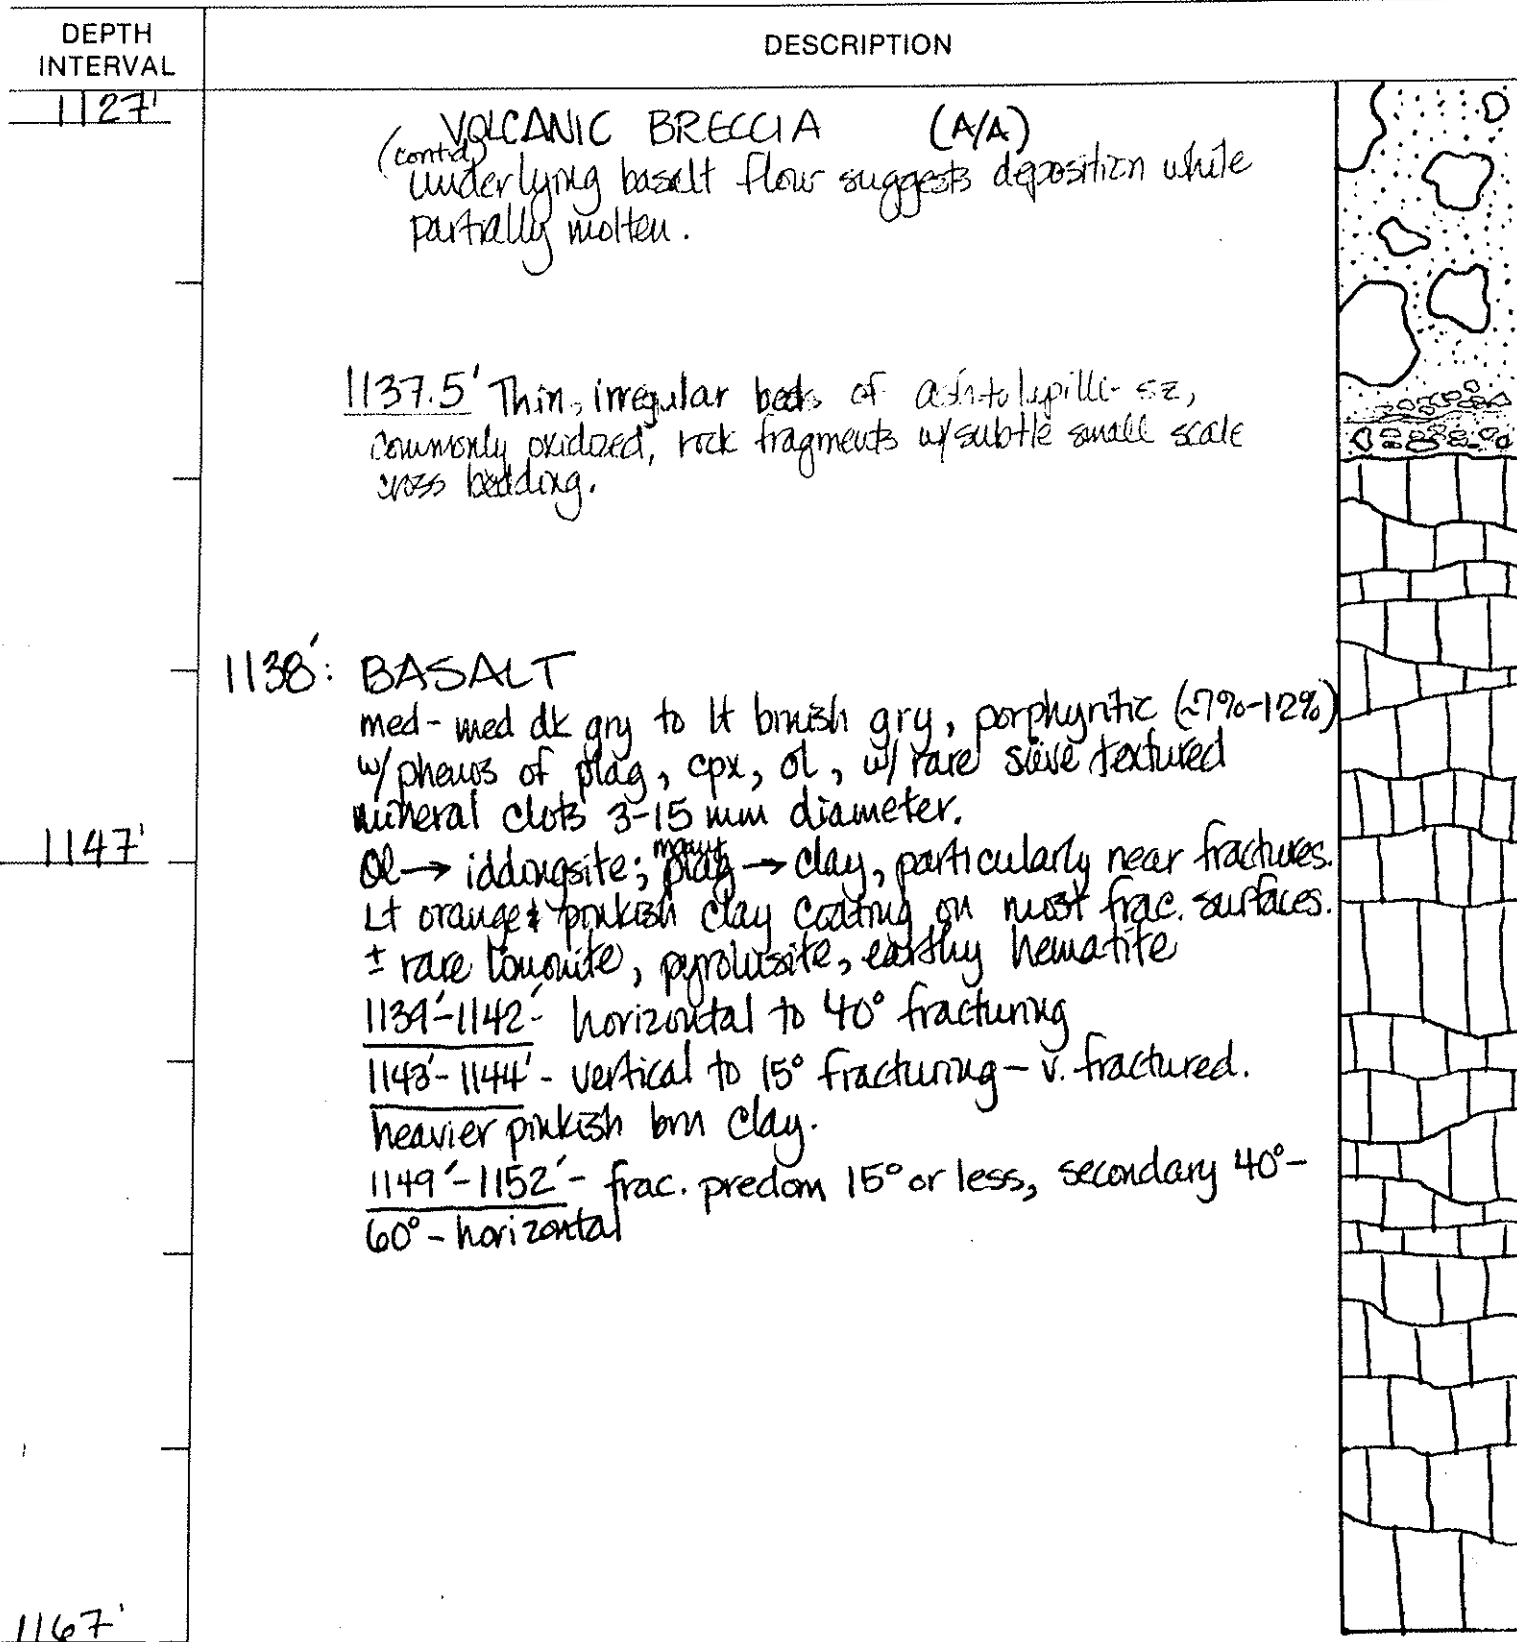 DEPTH INTERVAL
DESCRIPTION
1127'
VOLCANIC BRECCIA (A/A)
(cont'd)
underlying basalt flow suggests deposition while
partially molten.
1137.5' Thin, irregular beds of ash to lapilli-sz,
commonly oxidized, rock fragments w/subtle small scale
cross bedding.
1138': BASALT
med-med dk gry to lt brnish gry, porphyritic (~7%-12%)
w/phenos of plag, cpx, ol, w/ rare sieve textured
mineral clots 3-15 mm diameter.
1147'
Ol → iddingsite; many plag → clay, particularly near fractures.
Lt orange & pinkish clay coating on most frac. surfaces.
± rare limonite, pyrolusite, earthy hematite
1139'-1142'- horizontal to 40° fracturing
1143'-1144'- vertical to 15° fracturing - v. fractured.
heavier pinkish brn clay.
1149'-1152'- frac. predom 15° or less, secondary 40°-
60° - horizontal
1167'